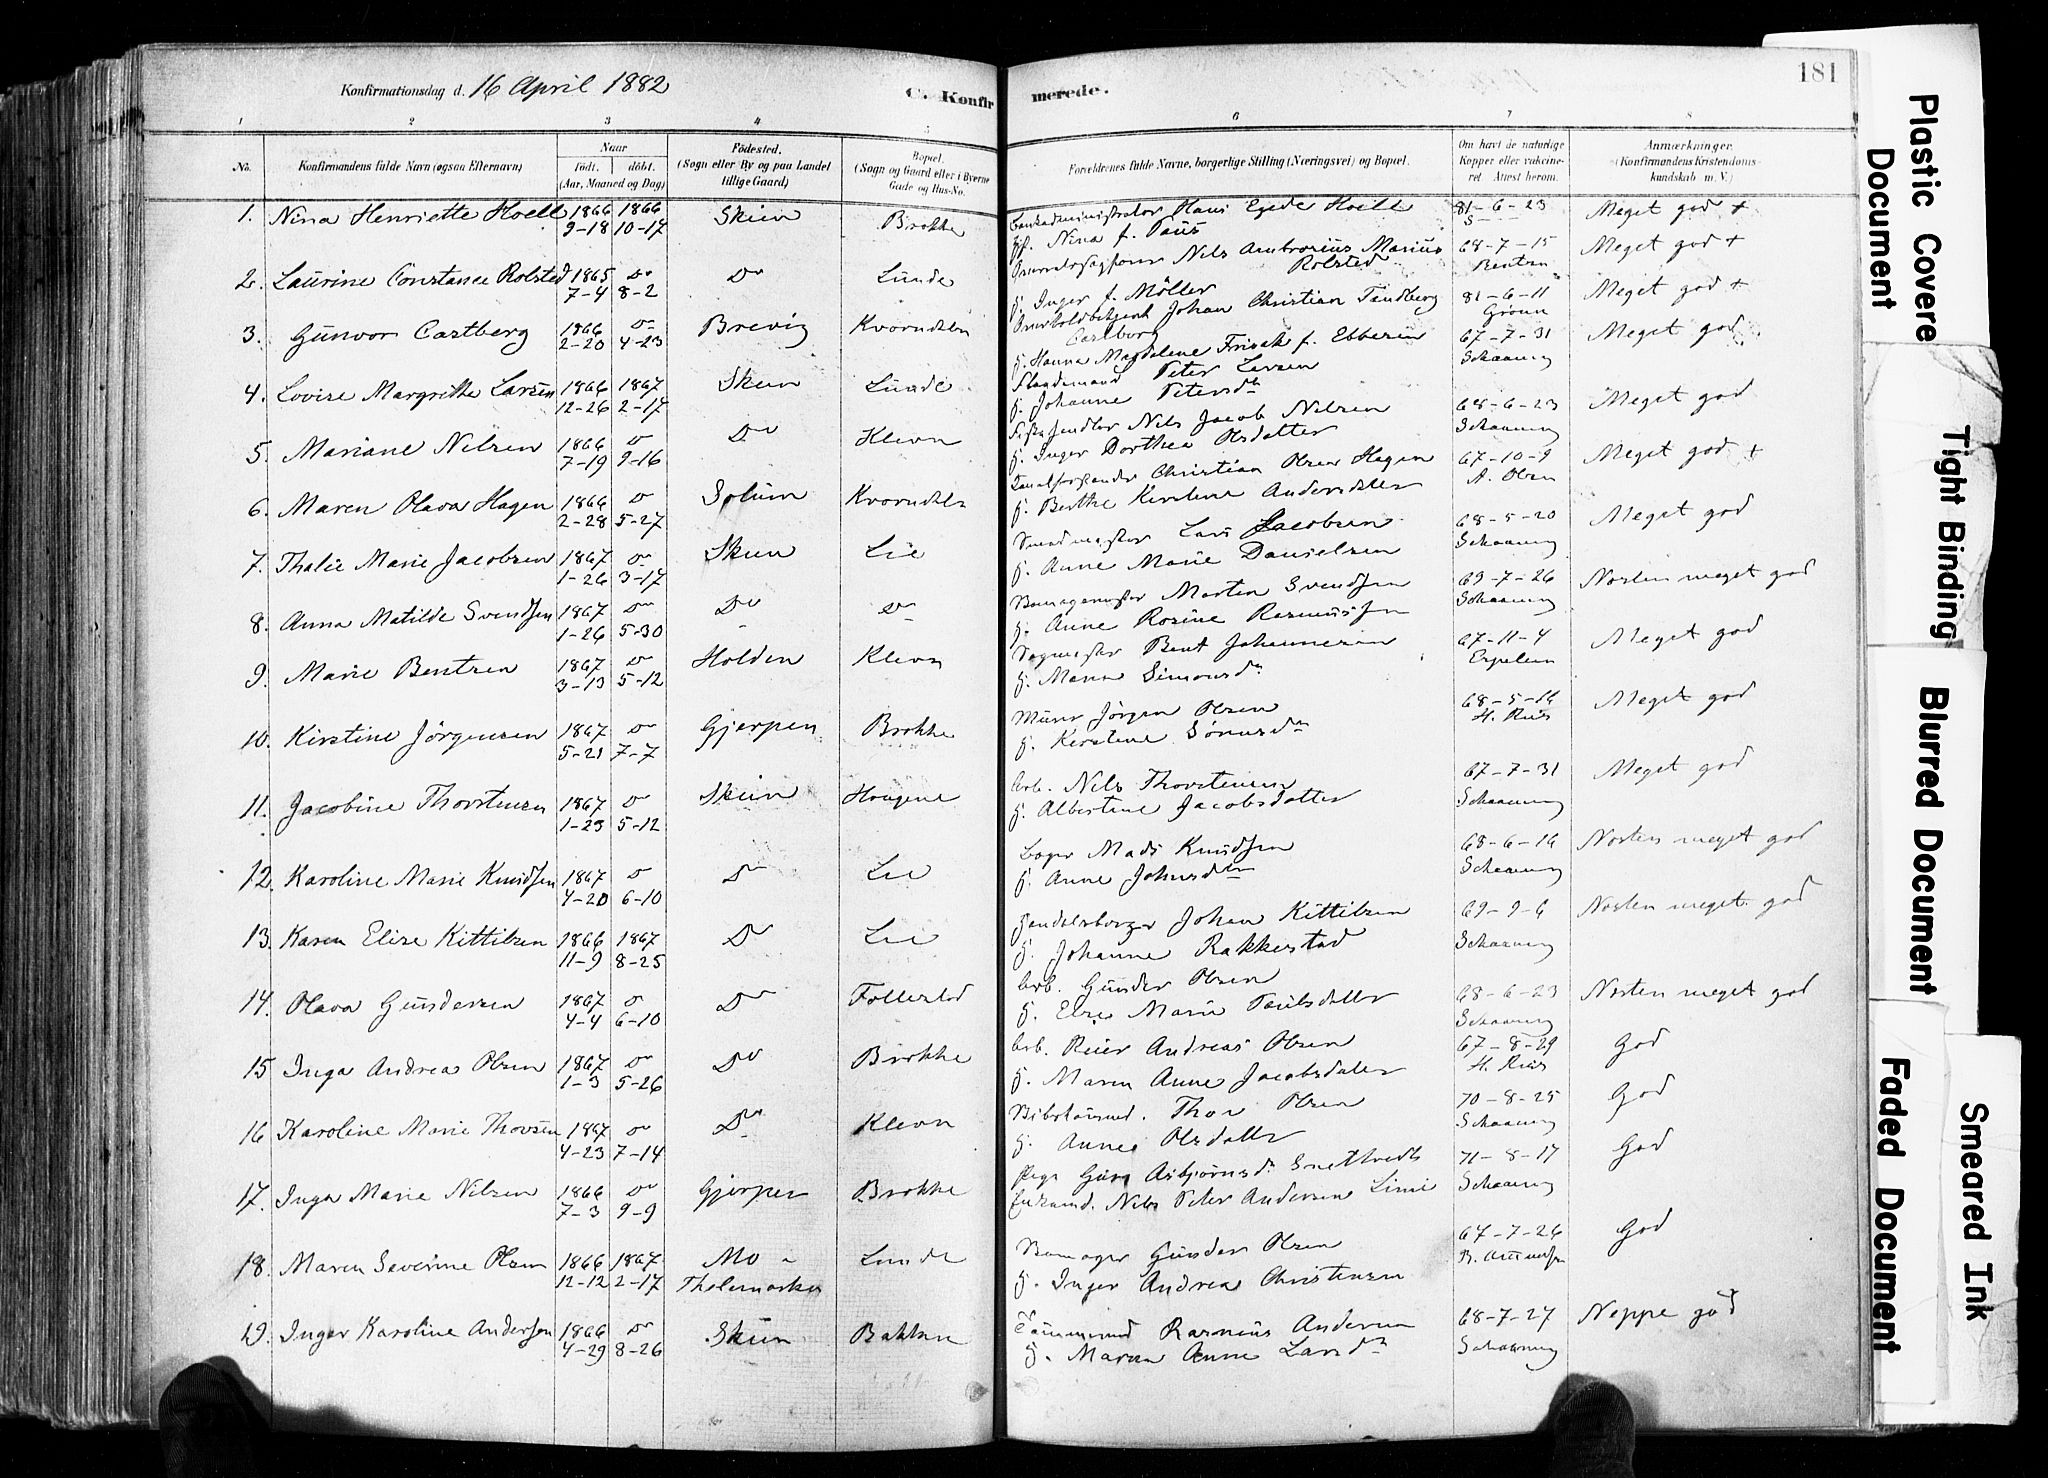 Konfirmationsdag d. 16 April 1882
C. Konfirmerede.
181
1 2 3 4 5 6 7 8
No. Konfirmandens fulde Navn (ogsaa Efternavn) Naar födt. döbt. (Aar, Maaned og Dag) Födested. (Sogn eller By og paa Landet tillige Gaard) Bopæl. (Sogn og Gaard eller i Byerne Gade og Hus-No. Forældrenes fulde Navne, borgerlige Stilling (Næringsvei) og Bopæl. Om havt de naturlige Kopper eller vaccineret. Attest herom. Anmærkninger. (Konfirmandens Kristendomskundskab m. V.)
1. Nina Henriette Hoell 1866 1866 Skien Brekke Hans Egede Hoell 81-6-23 Meget god +
9-18 10-17 Nina f. Paus
2. Laurine Constance Rolsted 1865 Do Do Lunde Nils Ambrosius Marius Rolsted 68-7-15 Meget god +
7-4 8-2 H. Inger f. Möller Bentzen
3. Gunvor Castberg 1866 Do Brevig Kvorndalen Johan Christian Tandberg Castberg 81-6-11 Meget god +
2-20 4-23 H. Hanna Magdalene Frisak f. Ebbesen
4. Lovise Margrethe Larsen 1866 1867 Skien Lunde Peter Larsen 67-7-31 Meget god
12-26 2-17 H. Johanne Petersdt Schaaning
5. Mariane Nilsen 1866 Do Do Kleven Nils Jacob Nilsen 68-6-23 Meget god
7-19 9-16 H. Inger Dorthea Olsdatter Schaaning
6. Maren Olava Hagen 1866 Do Solum Kvorndalen Christian Olsen Hagen 67-10-9 Meget god +
2-28 5-27 H. Berthe Kirstine Andersdatter A. Olsen
7. Thalie Marie Jacobsen 1867 Do Skien Lie Lars Jacobsen 68-5-20 Meget god
1-26 3-17 H. Anne Marie Danielsen Schaaning
8. Anna Matilde Svendsen 1867 Do Do Do Morten Svendsen 69-7-26 Næsten meget god
1-26 5-30 H. Anne Rosine Rasmussen Schaaning
9. Marie Bentzen 1867 Do Holden Kleven Bent Johannesen 67-11-4 Meget god
3-13 5-12 H. Maren Simonsdt
10. Kirstine Jörgensen 1867 Do Gjerpen Brekke Murer Jörgen Olsen 68-5-16 Meget god
5-21 7-7 H. Kirstine Sörensdt H. Riis
11. Jacobine Thorstensen 1867 Do Skien Haugene Arb. Nils Thorstensen 67-7-31 Meget god
1-23 5-12 H. Albertine Jacobsdatter Schaaning
12. Karoline Marie Knudsen 1867 Do Do Lie Mads Knudsen 68-6-16 Næsten meget god
4-20 6-10 H. Anne Johnsdtr Schaaning
13. Karen Elise Kittilsen 1866 1867 Do Lie Handelsborger Johan Kittilsen 69-9-6 Næsten meget god
11-9 8-25 H. Johanne Rakkestad Schaaning
14. Olava Gundersen 1867 Do Do Follestad Arb. Gunder Olsen 68-6-23 Næsten meget god
4-4 6-10 H. Else Marie Paulsdatter Schaaning
15 Inga Andrea Olsen 1867 Do Do Brekke Arb. Reier Andreas Olsen 67-8-29 God
1-3 5-26 H. Maren Anne Jacobsdatter H. Riis
16 Karoline Marie Thorsen 1867 Do Do Kleven Thor Olsen 70-8-25 God
4-23 7-14 H. Anne Olsdatter Schaaning
17. Inga Marie Nilsen 1866 Do Gjerpen Brekke Pige Guro Asbjörnsdt 71-8-17 God
7-3 9-9 Enkemd. Nils Peter Andersen Schaaning
18. Maren Severine Olsen 1866 1867 Mo - Lunde Gunder Olsen 67-7-26 God
12-12 2-17 Thelemarken H. Inger Andrea Christensen
19. Inger Karoline Andersen 1866 Do Skien Bakken Tömmermd Rasmus Andersen 68-7-27 Neppe god
4-29 8-26 H. Maren Anne Larsdt Schaaning
Plastic Covere Document
Tight Binding
Blurred Document
Faded Document
Smeared Ink